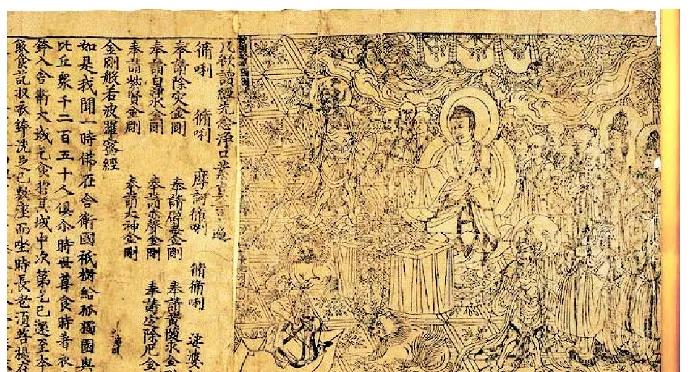 凡欲讀經先念淨口業真言一遍
脩唎 脩唎 摩訶脩唎 脩脩唎 娑婆
奉請除災金剛 奉請辟毒金剛 奉請黃隨求金
奉請白淨水金剛 奉請赤聲金剛 奉請定除厄金
奉請紫賢金剛 奉請大神金剛
金剛般若波羅蜜經
如是我聞一時佛在舍衛國祇樹給孤獨園與
比丘衆千二百五十人俱尒時世尊食時著衣
鉢入舍衛大城乞食於其城中次第乞已還至本
飯食訖收衣鉢洗足已敷座而坐時長老須菩提在